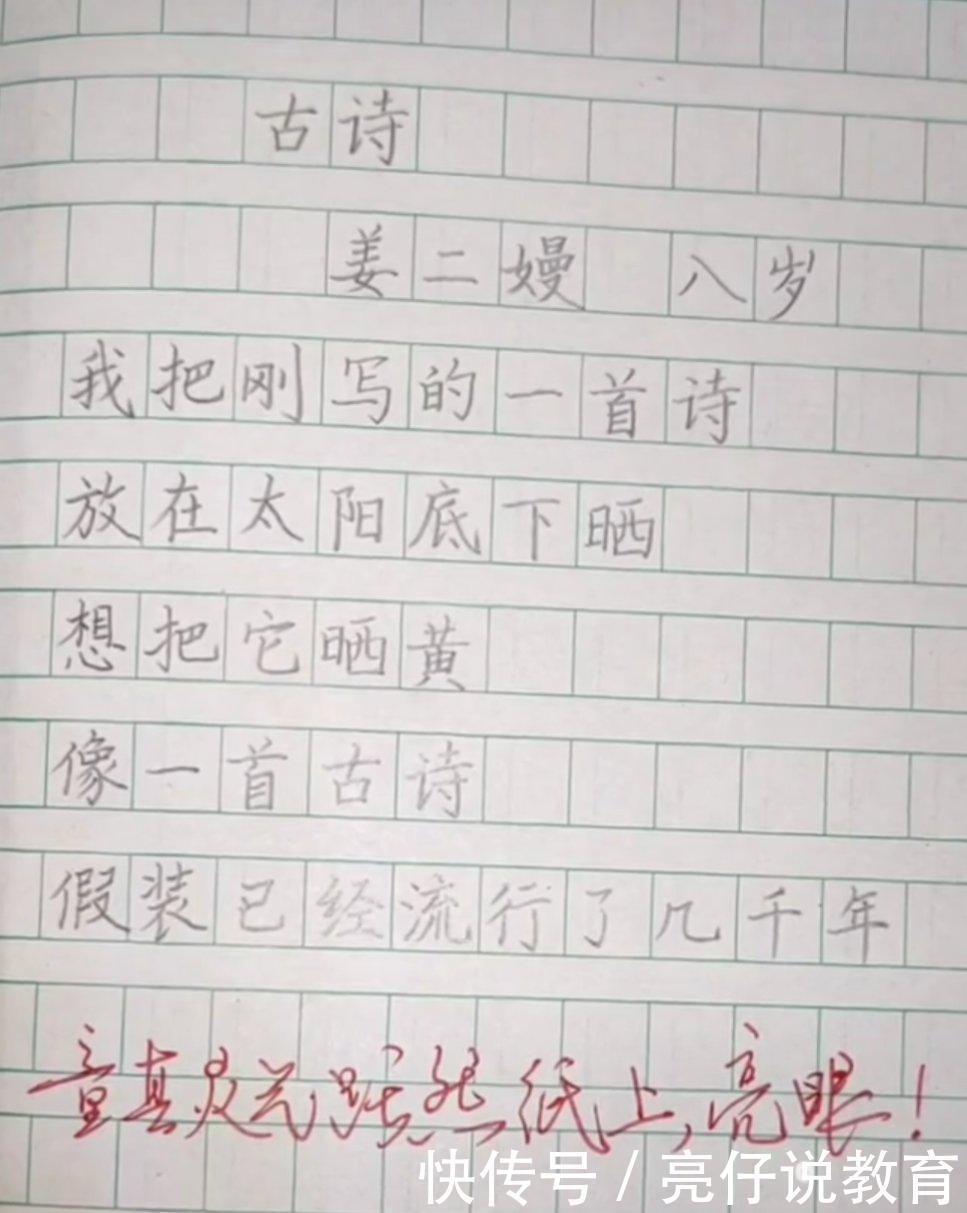 古诗
姜二嫚 八岁
我把刚写的一首诗
放在太阳底下晒
想把它晒黄
像一首古诗
假装已经流行了几千年
童真灵光,跃然纸上,亮眼!
快传号/亮仔说教育